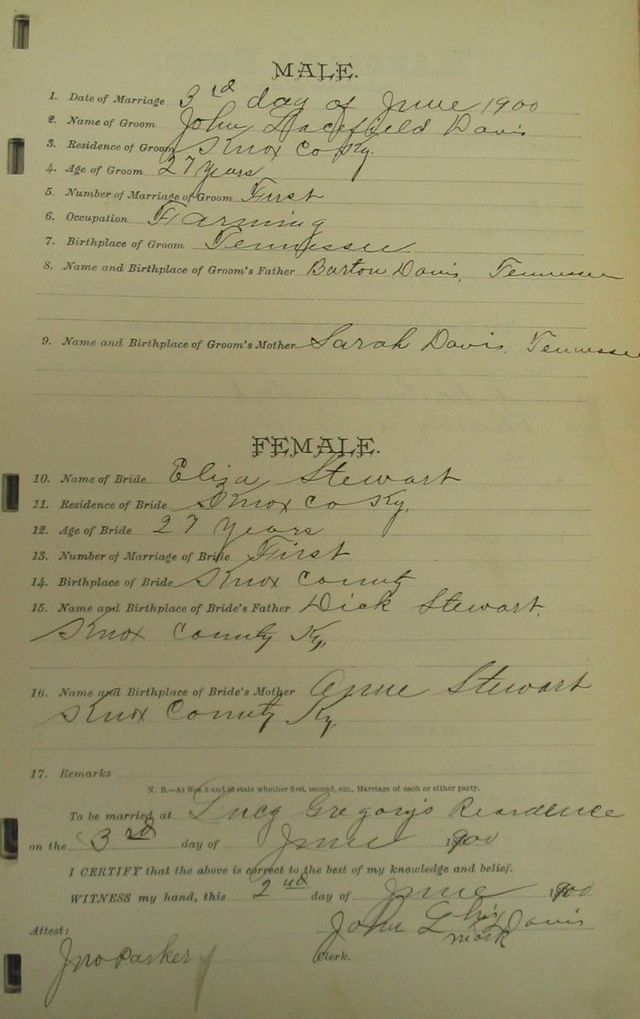 MALE.
1. Date of Marriage 3rd day of June 1900
2. Name of Groom John Davis
3. Residence of Groom Knox Co Ky.
4. Age of Groom 27 years
5. Number of Marriage of Groom First
6. Occupation Farming
7. Birthplace of Groom Tennessee
8. Name and Birthplace of Groom's Father Barton Davis, Tennessee
9. Name and Birthplace of Groom's Mother Sarah Davis, Tennessee
FEMALE.
10. Name of Bride Eliza Stewart
11. Residence of Bride Knox Co Ky.
12. Age of Bride 27 Years
13. Number of Marriage of Bride First
14. Birthplace of Bride Knox County
15. Name and Birthplace of Bride's Father Dick Stewart,
Knox County Ky,
16. Name and Birthplace of Bride's Mother Anne Stewart
Knox County Ky
17. Remarks
N. B.—At Nos 5 and 13 state whether first, second, etc., Marriage of each or either party.
To be married at Lucy Gregory's Residence
on the 3rd day of June 1900
I CERTIFY that the above is correct to the best of my knowledge and belief.
WITNESS my hand, this 2nd day of June 1900
John his Davis
mark
Attest:
Clerk.
Jno Parker